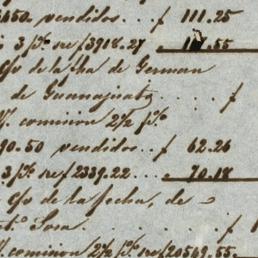 450. vendidos... f 111.25
3 p% re f 3918.27 117.55
c/o de la fha de German
de Guanajuato . . f
comision 2½ p%
90.50 vendidos.. f 62.26
3 p% re f 2339.22 ... 70.18
c/o de la fecha, de
Sosa. . f
comision 2½ p% re f 20549.55